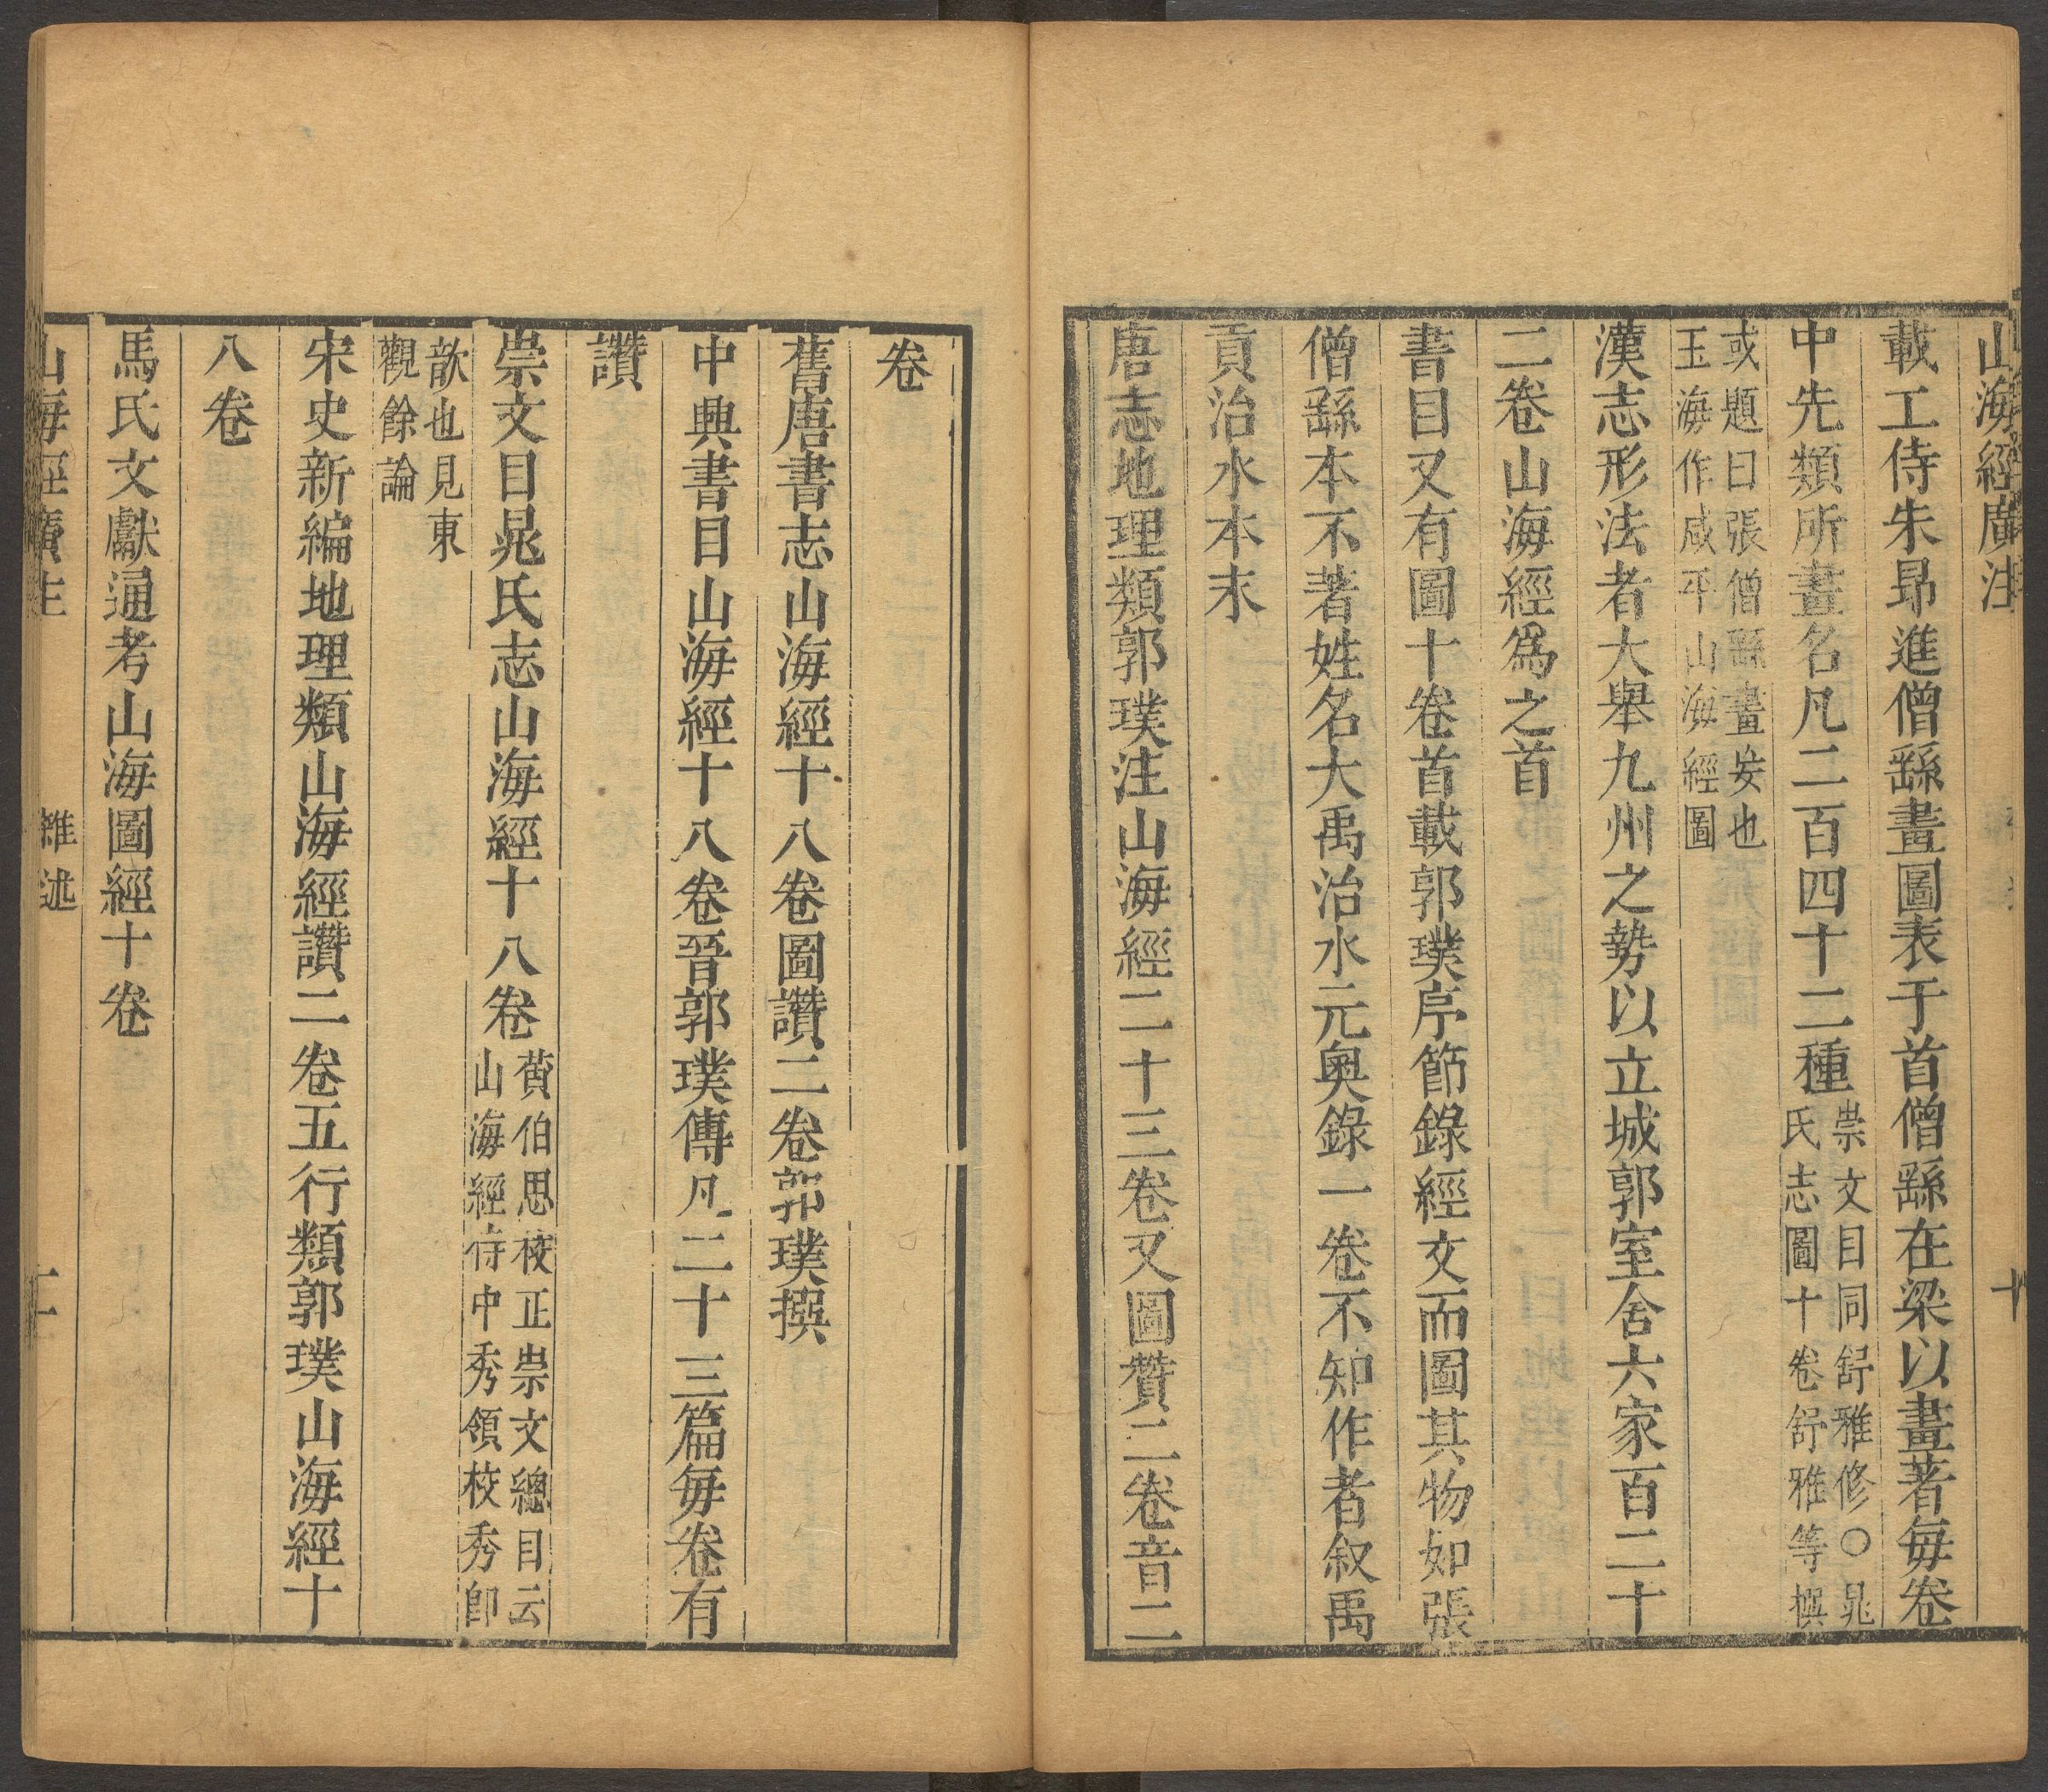 山海經廣注 十
載工侍朱昴進僧繇畫圖表于首僧繇在梁以畫著每卷
中先類所畫名凡二百四十二種
崇文目同舒雅修○晁
氏志圖十卷舒雅等撰
或題曰張僧繇畫妄也
玉海作咸平山海經圖
漢志形法者大舉九州之勢以立城郭室舍六家百二十
二卷山海經爲之首
書目又有圖十卷首載郭璞序節錄經文而圖其物如張
僧繇本不著姓名大禹治水元奧錄一卷不知作者叙禹
貢治水本末
唐志地理類郭璞注山海經二十三卷又圖贊二卷音二
卷
舊唐書志山海經十八卷圖讚二卷郭璞撰
中興書目山海經十八卷晉郭璞傳凡二十三篇每卷有
讚
崇文目晁氏志山海經十八卷
黃伯思校正崇文總目云
山海經侍中秀領校秀卽
歆也見東
觀餘論
宋史新編地理類山海經讚二卷五行類郭璞山海經十
八卷
馬氏文獻通考山海圖經十卷
山海經廣注 雜述